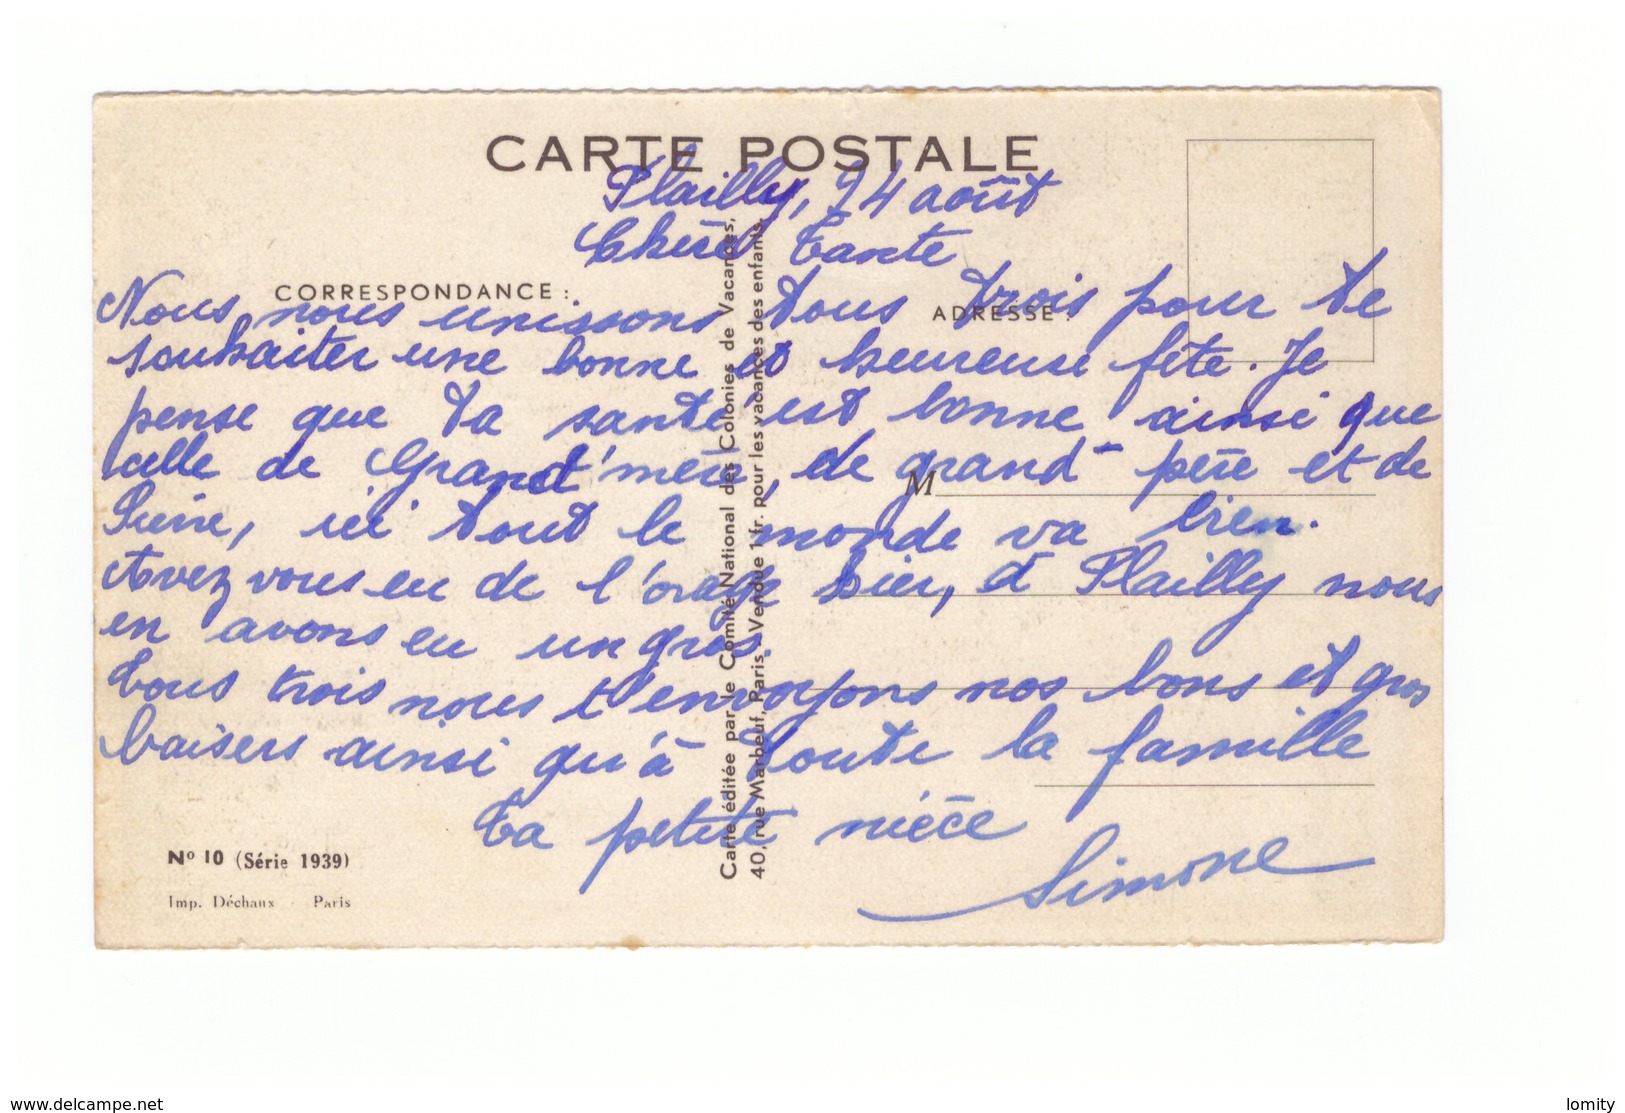 CARTE POSTALE
Plailly, 24 août
Chère Tante
CORRESPONDANCE :
ADRESSE :
Nous nous unissons tous trois pour te
souhaiter une bonne et heureuse fête. Je
pense que ta santé est bonne ainsi que
celle de Grand'mère, de grand-père et de
Pierre, ici tout le monde va bien.
Avez vous eu de l'orage hier, à Plailly nous
en avons eu un gros.
Tous trois nous t'envoyons nos bons et gros
baisers ainsi qu'à toute la famille
Ta petite nièce
Simone
M
Carte éditée par le Comité National des Colonies de Vacances,
40, rue Marbeuf, Paris. Vendue 1 fr. pour les vacances des enfants.
No 10 (Série 1939)
Imp. Déchaux - Paris
www.delcampe.net
lomity